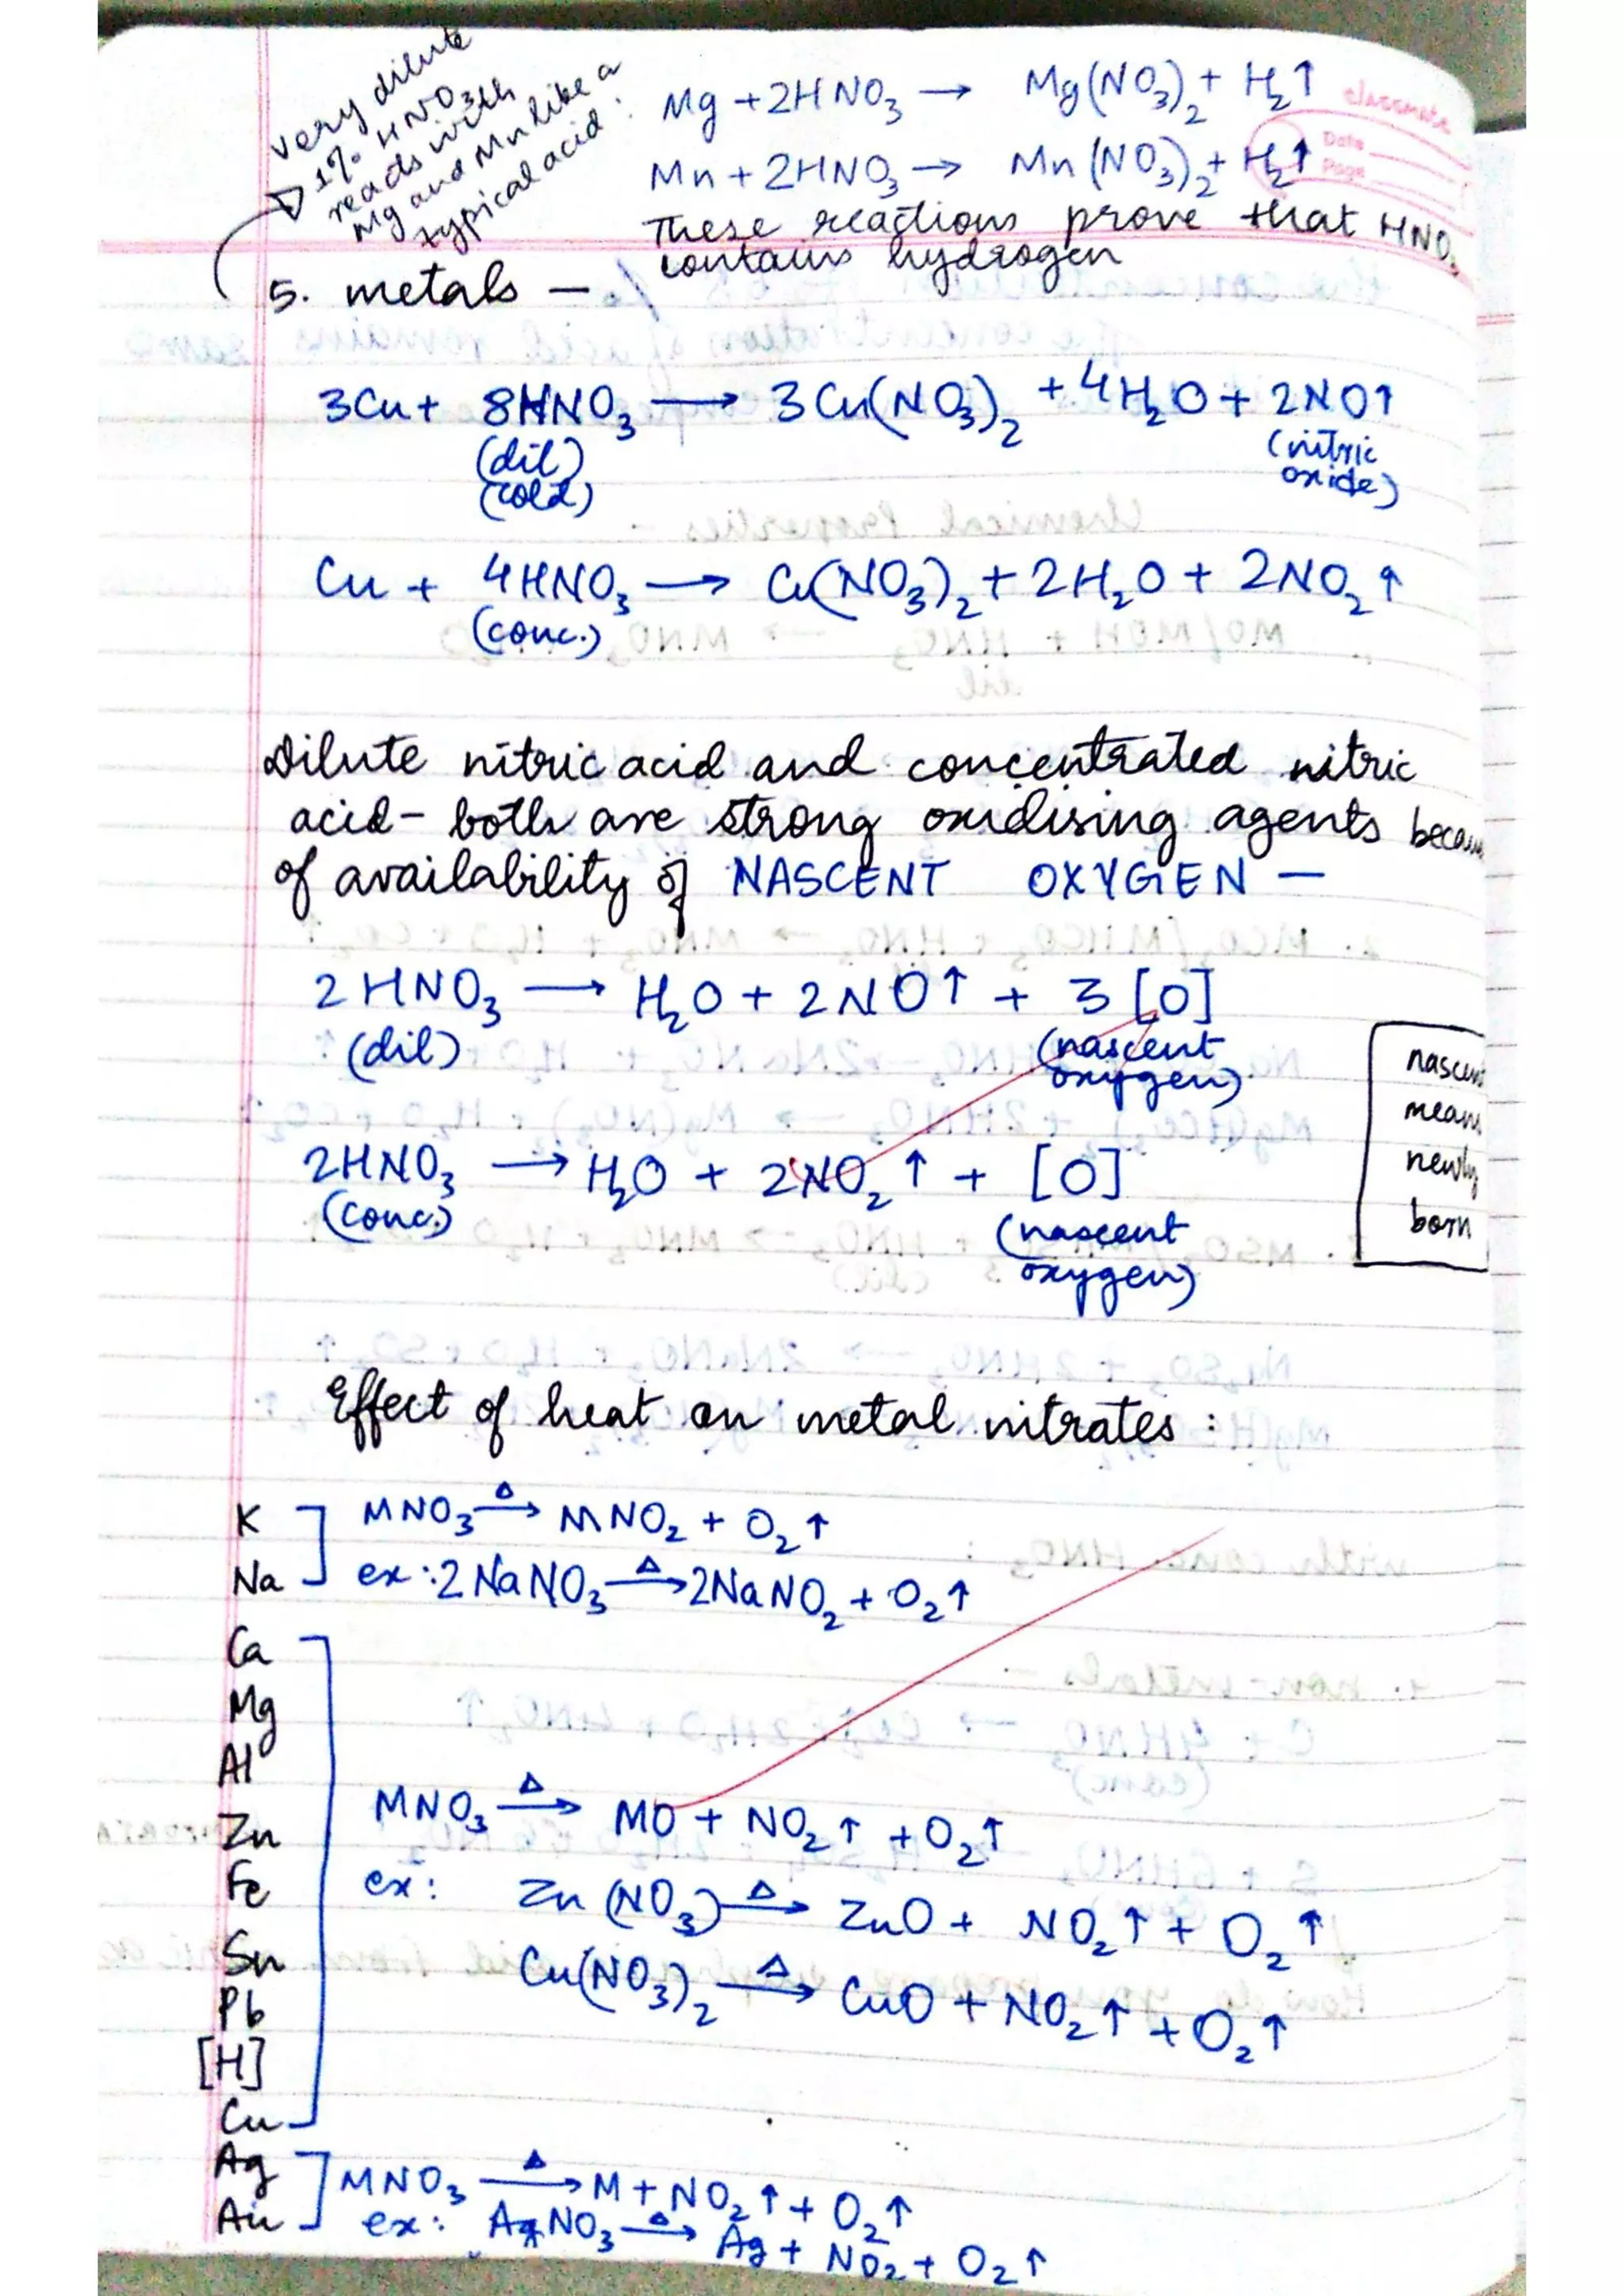 very dilute
1% HNO3
reacts with
Mg and Mn like a
typical acid :
Mg + 2HNO₃ → Mg(NO₃)₂ + H₂↑
Mn + 2HNO₃ → Mn(NO₃)₂ + H₂↑
These reactions prove that HNO₃
contains hydrogen
classmate
Date
Page
5. metals —
3Cu + 8HNO₃ → 3Cu(NO₃)₂ + 4H₂O + 2NO↑
(dil)
(cold)
(nitric
oxide)
Cu + 4HNO₃ → Cu(NO₃)₂ + 2H₂O + 2NO₂↑
(conc.)
Dilute nitric acid and concentrated nitric
acid - both are strong oxidising agents becau
of availability of NASCENT OXYGEN —
2HNO₃ → H₂O + 2NO↑ + 3[O]
(dil)
(nascent
oxygen)
2HNO₃ → H₂O + 2NO₂↑ + [O]
(conc.)
(nascent
oxygen)
nascen
mean
newly
born
Effect of heat on metal nitrates :
K
Na
MNO₃ Δ→ MNO₂ + O₂↑
ex : 2NaNO₃ Δ→ 2NaNO₂ + O₂↑
Ca
Mg
Al
Zn
Fe
Sn
Pb
[H]
Cu
MNO₃ Δ→ MO + NO₂↑ + O₂↑
ex : Zn(NO₃) Δ→ ZnO + NO₂↑ + O₂↑
Cu(NO₃)₂ Δ→ CuO + NO₂↑ + O₂↑
Ag
Au
MNO₃ Δ→ M + NO₂↑ + O₂↑
ex : AgNO₃ Δ→ Ag + NO₂ + O₂↑